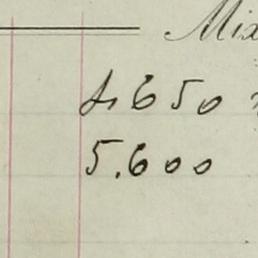 Mix
4.650
5.600